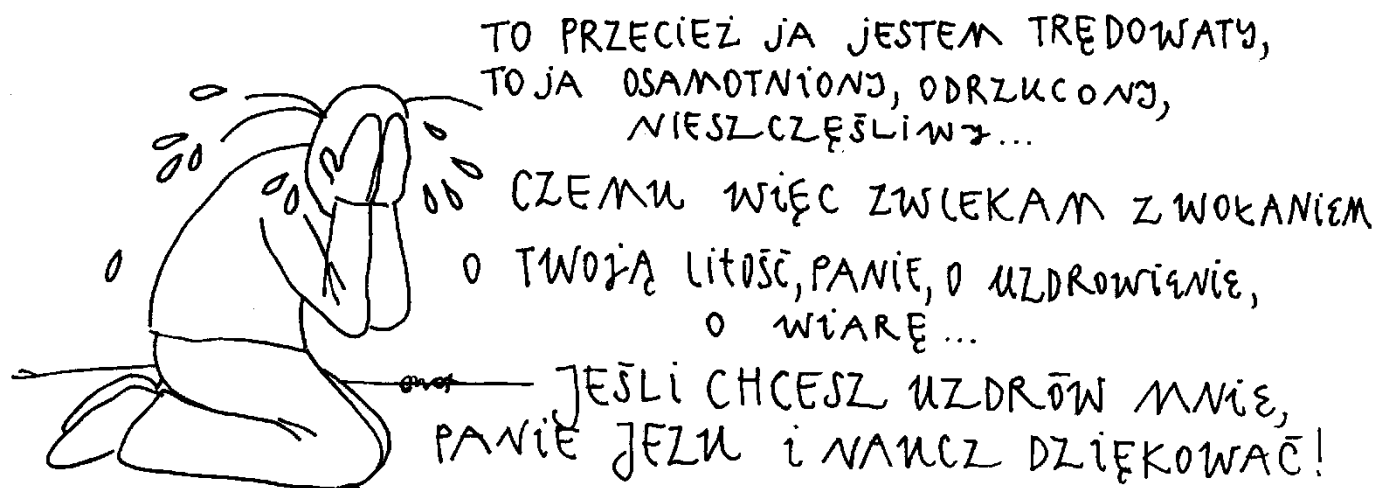 TO PRZECIEŻ JA JESTEM TRĘDOWATY,
TO JA OSAMOTNIONY, ODRZUCONY,
NIESZCZĘŚLIWY...
CZEMU WIĘC ZWLEKAM Z WOŁANIEM
O TWOJĄ LITOŚĆ, PANIE, O UZDROWIENIE,
O WIARĘ...
JEŚLI CHCESZ UZDRÓW MNIE,
PANIE JEZU I NAUCZ DZIĘKOWAĆ!